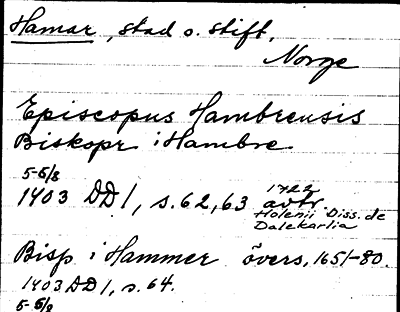 Hamar, stad o. stift,
Norge
Episcopus Hambrensis
Biskopr i Hambre
5-5/8
1403 DD1, s. 62, 63 1722 avtr.
Holenii Diss. de
Dalekarlia
Bisp i Hammer övers, 1651-80.
1403 DD1, s. 64.
5-5/8